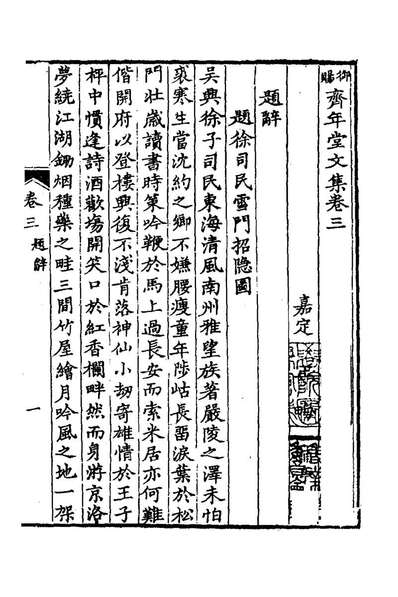 御賜齊年堂文集卷三
嘉定
題辭
題徐司民雲門招隱圖
吳興徐子司民東海清風南州雅望族著嚴陵之澤未怕
裘寒生當沈約之鄉不嫌腰瘦童年陟岵長畱淚葉於松
門壯歲讀書時策吟鞭於馬上過長安而索米居亦何難
偕開府以登樓興復不淺肯落神仙小劫寄雄情於王子
枰中慣逢詩酒歡塲開笑口於紅香欄畔然而身游京洛
夢繞江湖鋤烟種藥之畦三間竹屋繪月吟風之地一架
卷三 題辭 一